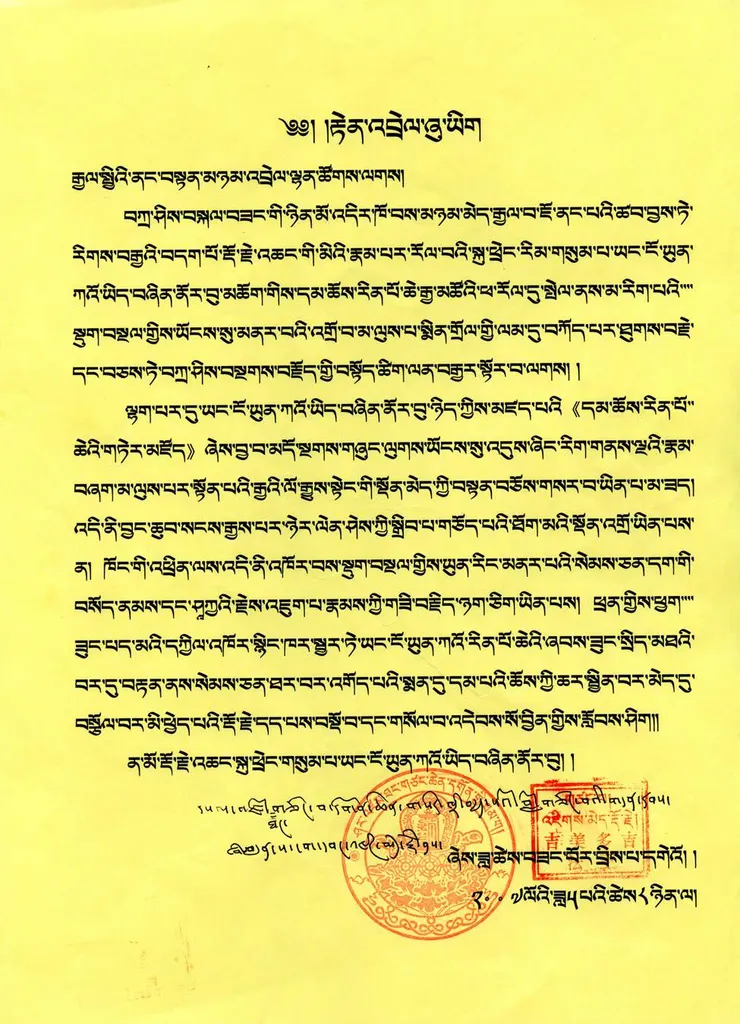 ༄༅། །རྟེན་འབྲེལ་ཞུ་ཡིག
རྒྱལ་སྤྱིའི་ནང་བསྟན་མཉམ་འབྲེལ་ལྷན་ཚོགས་ལགས།
བཀྲ་ཤིས་བསྐལ་བཟང་གི་ཉིན་མོ་འདིར་ཁོ་བས་མཉམ་མེད་རྒྱལ་བ་ཇོ་ནང་པའི་ཚབ་བྱས་ཏེ་
རིགས་བརྒྱའི་བདག་པོ་རྡོ་རྗེ་འཆང་གི་མིའི་རྣམ་པར་རོལ་བའི་སྐུ་ཕྲེང་རིམ་གསུམ་པ་ཡང་ངོ་ཡུན་
ཀའོ་ཡིད་བཞིན་ནོར་བུ་མཆོག་གིས་དམ་ཆོས་རིན་པོ་ཆེ་རྒྱ་མཚོའི་ཕ་རོལ་དུ་སྤེལ་ནས་མ་རིག་པའི་""
སྡུག་བསྔལ་གྱིས་ཡོངས་སུ་མནར་བའི་འགྲོ་བ་མ་ལུས་པ་སྨིན་གྲོལ་གྱི་ལམ་དུ་བཀོད་པར་ཐུགས་བརྗེ་
དང་བཅས་ཏེ་བཀྲ་ཤིས་བསྔགས་བརྗོད་ཀྱི་བསྟོད་ཚིག་ལན་བརྒྱར་སྟོར་བ་ལགས། །
ལྷག་པར་དུ་ཡང་ངོ་ཡུན་ཀའོ་ཡིད་བཞིན་ནོར་བུ་ཉིད་ཀྱིས་མཛད་པའི 《དམ་ཆོས་རིན་པོ"
ཆེའི་གཏེར་མཛོད》 ཞེས་བྱ་བ་མདོ་སྔགས་གཞུང་ལུགས་ཡོངས་སུ་འདུས་ཞིང་རིག་གནས་ལྔའི་རྣམ་
བཞག་མ་ལུས་པར་སྟོན་པའི་རྒྱའི་ལོ་རྒྱུས་སྟེང་གི་སྔོན་མེད་ཀྱི་བསྟན་བཅོས་གསར་བ་ཡིན་པ་མ་ཟད།
འདི་ནི་བྱང་ཆུབ་སངས་རྒྱས་པར་ཉེར་ལེན་ཤེས་ཀྱི་སྒྲིབ་པ་གཅོད་པའི་ཐོག་མའི་སྔོན་འགྲོ་ཡིན་པས་
ན། ཁོང་གི་འཕྲིན་ལས་འདི་ནི་འཁོར་བས་སྡུག་བསྔལ་གྱིས་ཡུན་རིང་མནར་པའི་སེམས་ཅན་དག་གི་
བསོད་ནམས་དང་ཤཱཀྱའི་རྗེས་འཇུག་པ་རྣམས་ཀྱི་གཟི་བརྗིད་ཉག་ཅིག་ཡིན་པས། ཕྲན་གྱིས་ཕྱག་""
ཟུང་པད་མའི་དཀྱིལ་འཁོར་སྙིང་ཁར་སྦྱར་ཏེ་ཡང་ངོ་ཡུན་ཀའོ་རིན་པོ་ཆེའི་ཞབས་ཟུང་སྲིད་མཐའི་
བར་དུ་བརྟན་ནས་སེམས་ཅན་ཐར་བར་འགོད་པའི་སྨན་དུ་དམ་པའི་ཆོས་ཀྱི་ཆར་སྦྱིན་བར་མེད་དུ་
བསྩོལ་བར་མི་ཕྱེད་པའི་རྡོ་རྗེ་དད་པས་བསྔོ་བ་དང་གསོལ་བ་འདེབས་སོ་བྱིན་གྱིས་རློབས་ཤིག།
ན་མོ་རྡོ་རྗེ་འཆང་སྐུ་ཕྲེང་གསུམ་པ་ཡང་ངོ་ཡུན་ཀའོ་ཡིད་བཞིན་ནོར་བུ། །
འཇིགས་མེད་རྡོ་རྗེ།
吉美多吉
ཞེས་ཟླ་ཚེས་བཟང་པོར་བྲིས་པ་དགེའོ། །
༢༠༠༧ལོའི་ཟླ༥པའི་ཚེས༨ཉིན་ལ།